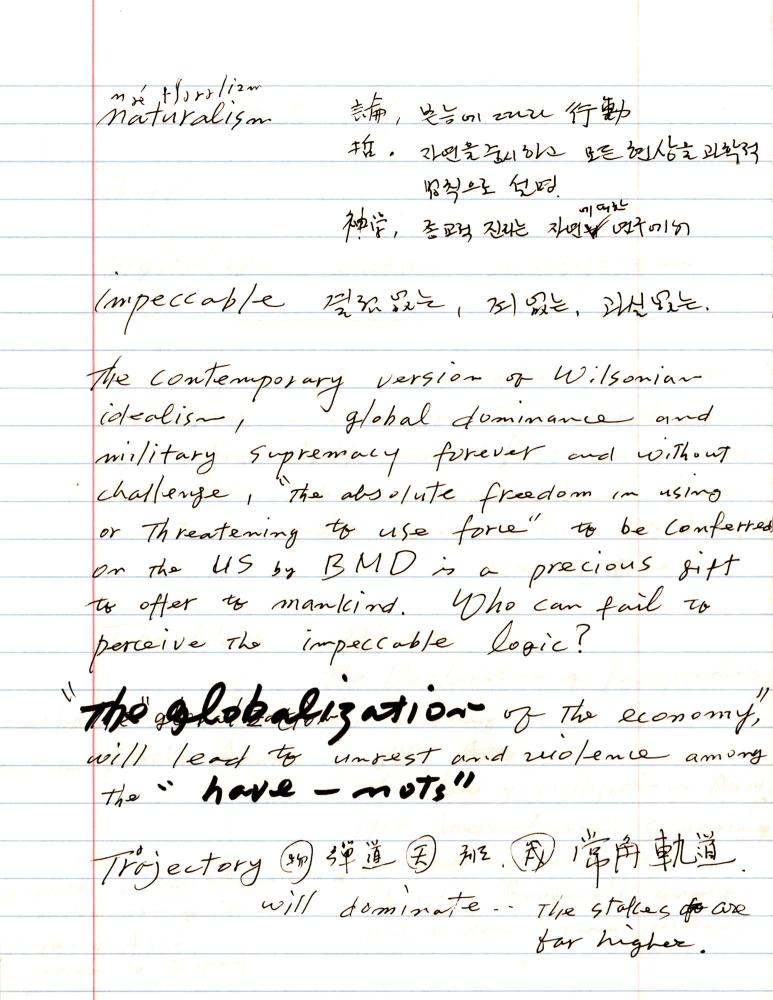 naturalism 論, 본능에 따라 行動
哲. 자연을 중시하고 모든 현상을 과학적
법칙으로 설명.
에 대한
神学, 종교적 진리는 자연 연구에서
impeccable 결점없는, 죄없는, 과실없는.
The contemporary version of Wilsonian
idealism, global dominance and
military supremacy forever and without
challenge, "The absolute freedom in using
or Threatening to use force" to be conferred
on the US by BMD is a precious gift
to offer to mankind. Who can fail to
perceive The impeccable logic?
"The globalization of The economy",
will lead to unrest and violence among
the "have-nots"
Trajectory 物 弾道 天 幾 常角 軌道.
will dominate.. The stakes are
far higher.